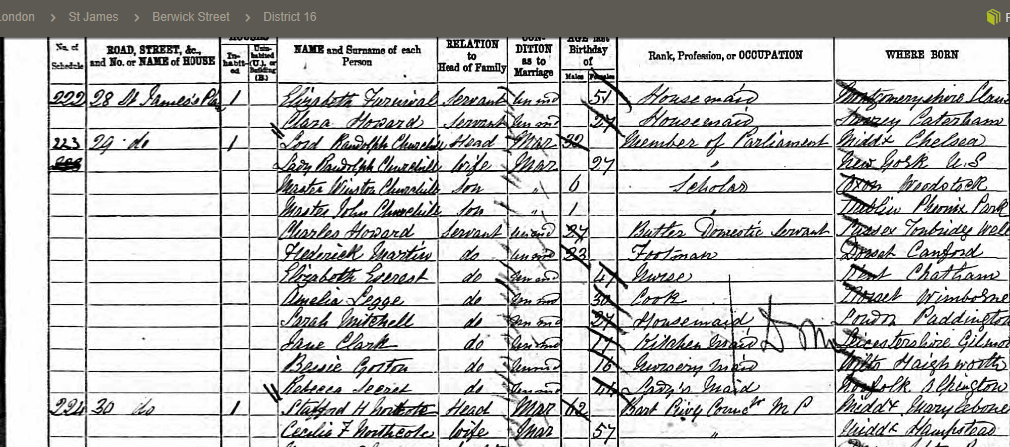 London > St James > Berwick Street > District 16
No. of Schedule ROAD, STREET, &c., and No. or NAME of HOUSE HOUSES In-habit-ed Unin-habited (U.), or Building (B.) NAME and Surname of each Person RELATION to Head of Family CON-DITION as to Marriage AGE last Birthday of Males Females Rank, Profession, or OCCUPATION WHERE BORN
222 28 St James's 1 Elizabeth Furnival Servant 51 Housemaid Montgomeryshire
Clara Howard Servant 27 Housemaid Surrey Caterham
223 29 do 1 Lord Randolph Churchill Head Mar 32 Member of Parliament Middx Chelsea
Lady Randolph Churchill Wife Mar 27 " New York U.S
Master Winston Churchill Son " 6 Scholar Oxon Woodstock
Master John Churchill Son " 1 " Dublin Phoenix Park
Charles Howard Servant 27 Butler Domestic Servant Tonbridge Well
Frederick Martin do 23 Footman Dorset Canford
Elizabeth Everest do 47 Nurse Kent Chatham
Amelia Legge do 30 Cook Dorset Wimborne
Sarah Mitchell do 27 Housemaid London Paddington
Jane Clark do 17 Kitchen Maid Leicestershire
Bessie do 16 Nursery Maid Wilts
Rebecca Secret do Lady's Maid Norfolk
224 30 do 1 Stafford H Northcote Head Mar 62 Bart Privy M P Middx Marylebone
Cecilia F Northcote Wife Mar 57 " Middx Hampstead